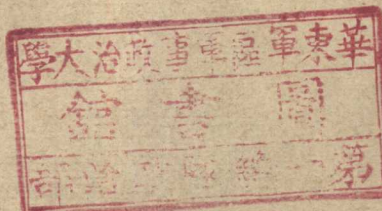 華東軍區軍事政治大學
圖書館
第 總隊政治部